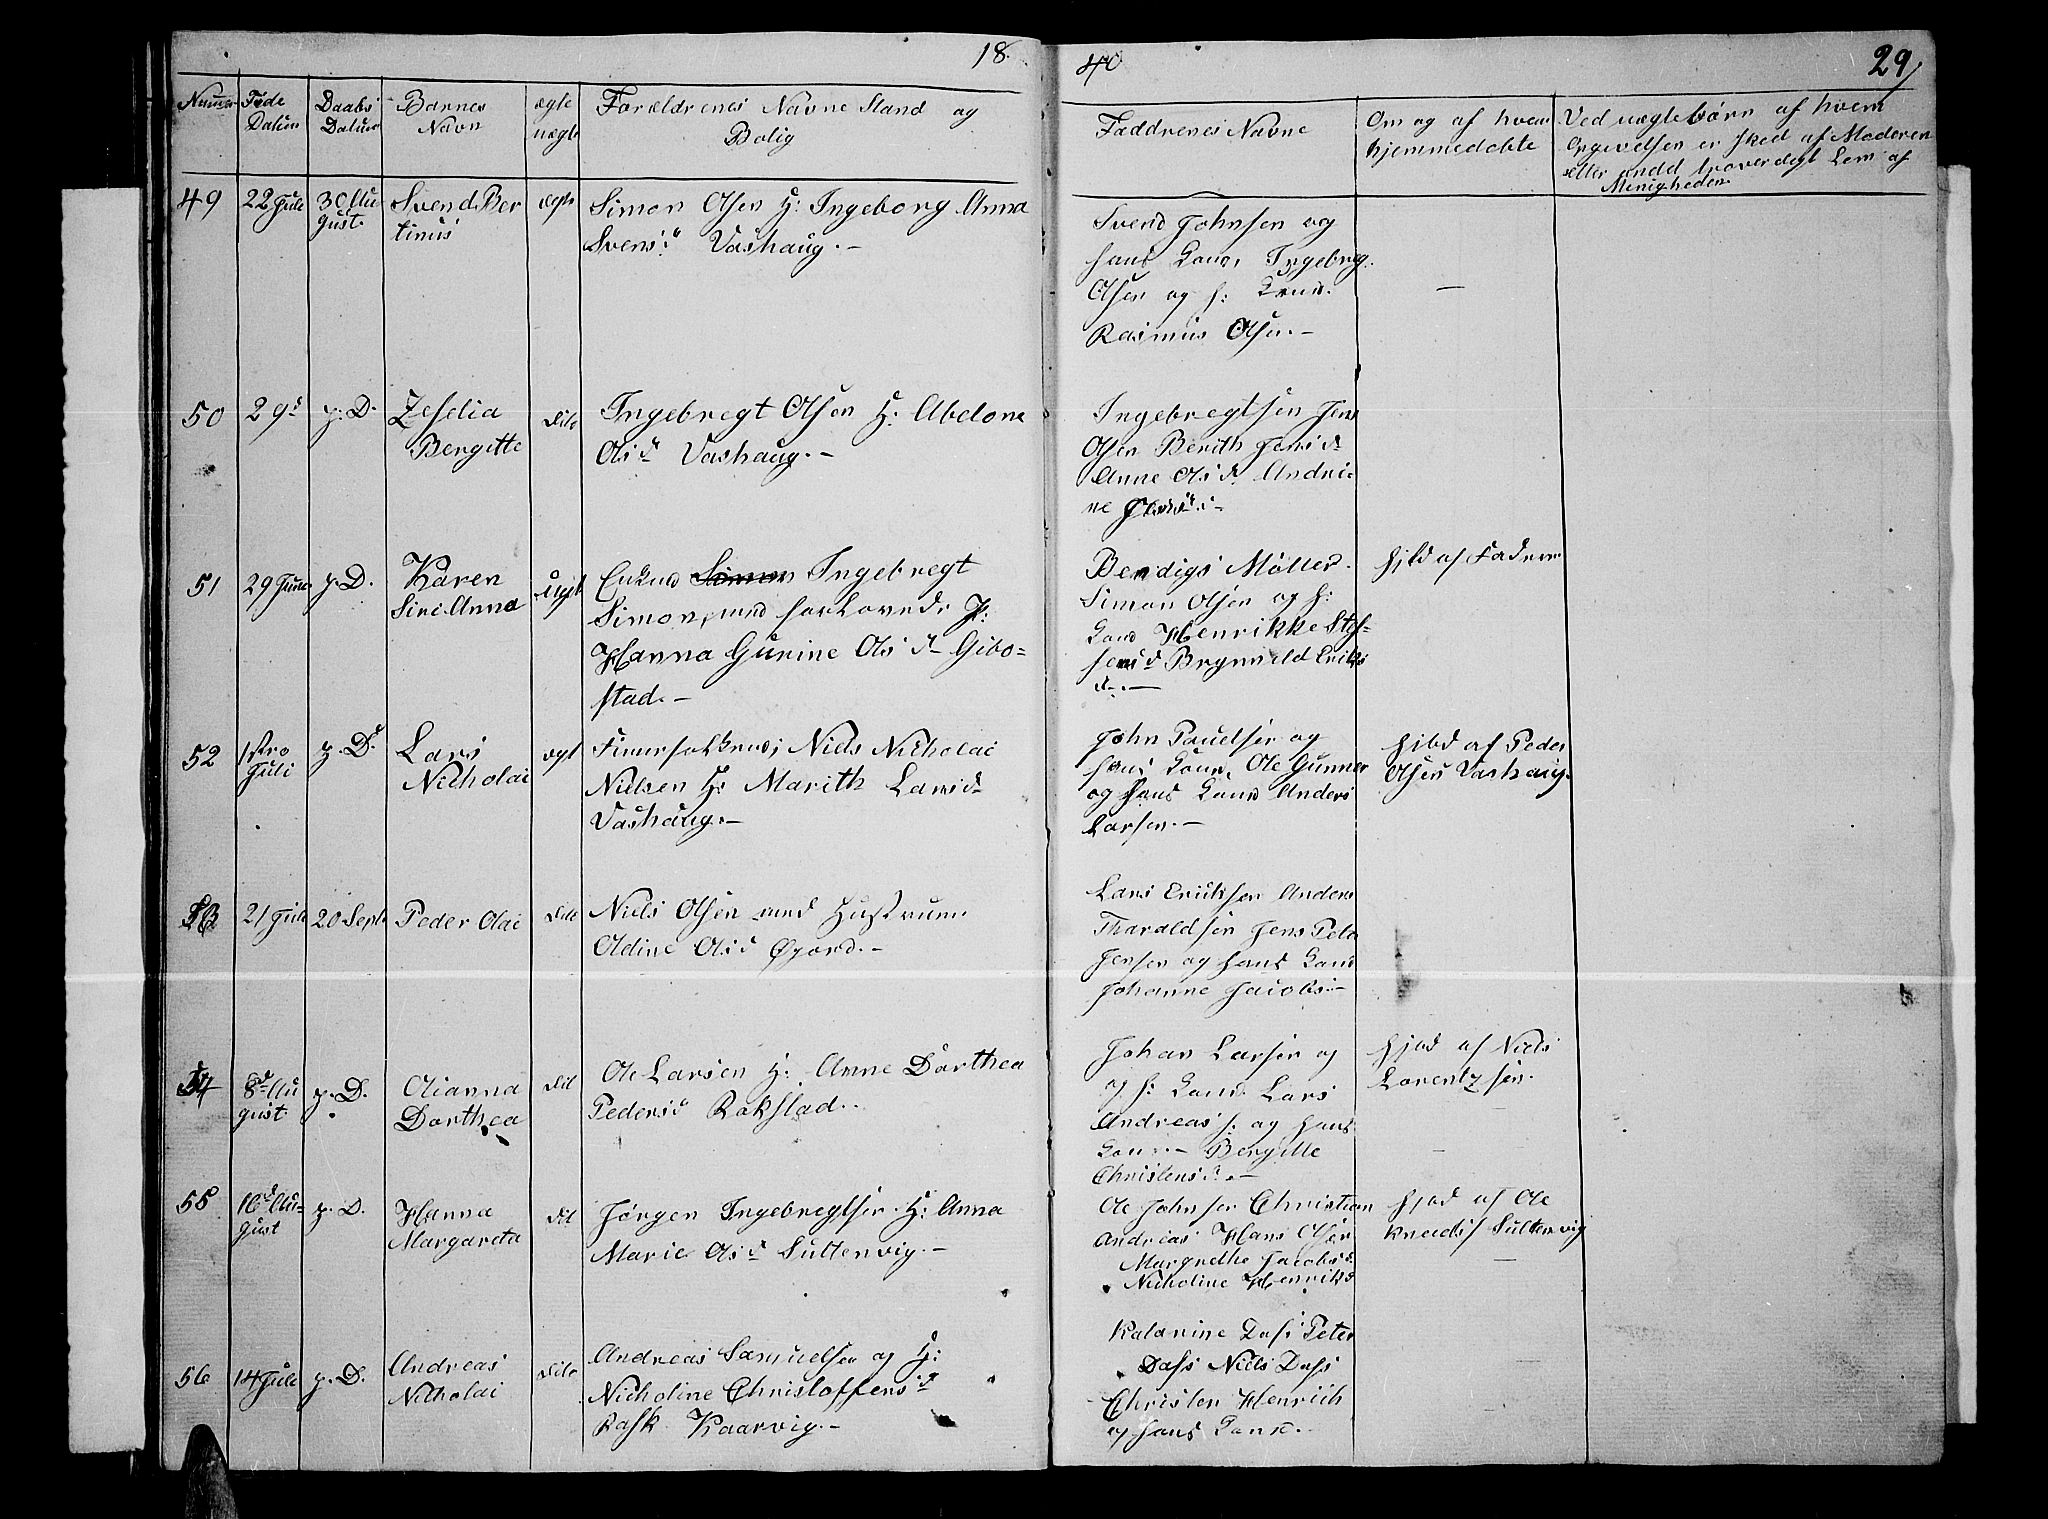 18
40
29
Numer
Føde
Datum
Daabs
Datum
Barnes
Navn
ægte
uægte
Forældrenes Navne Stand og
Bolig
Faddrenes Navne
Om og af hvem
hjemmedøbte
Ved uægte børn af hvem
Opgivelsen er sked af Moderen
eller andd troverdigt Lem af
Menigheden
49 22 Juli 30 Au
gust.
Svend Ber
tinus
ægte
Simon Olsen H: Ingeborg Anna
Svensd Vashaug.-
Svend Johnsen og
hans Kone, Ingebreg
Olsen og h: Kone.
Rasmus Olsen.-
—
50 29d p: D.
Zeselia
Bergitte
dito
Ingebregt Olsen H: Abelone
Olsd Vashaug.-
Ingebregtsen Jens
Olsen Berith Jensd
Anne Olsd Andri=
ne
51 29 Juni p. D.
Karen
Sine Anna
uægt
Enkmd Simon Ingebregt
Simons, med forlovede P:
Hanna Gurine Olsd Gibo=
stad.-
Bendigs Møller.
Simon Olsen og h:
Kone Henrikke Stef=
fensd Brynnild Eriks
d.-
hjbd af Faderen
52 1stro
Juli
p. Dd
Lars
Nicholai
ægt
Finnefolkene, Niels Nicholai
Nielsen H: Marith Larsd
Vashaug.-
John Pauelsen og
hans Kone, Ole Gunner
og hans Kone Anders
Larsen.-
hjbd af Peder
Olsen Vashaug.
53 21 Juli 20 Sept
Peder Olai
dito
Niels Olsen med Hustrue
Oldine Olsd Øyord.-
Lars Eriksen Anders
Tharaldsen Jens Peter
Jensen og hans Kone
Johanne Jacobs.-
54 8d Au
gust.
p. D.
Olianna
Dorthea
dit
Ole Larsen H: Anne Dorthea
Pedersd Rokstad.
Johan Larsen og
og h: Kone. Lars
Andreas h: og hans
Kone - Bergitte
Christensd.-
hjbd af Niels
Lorentzsen.
—
55 16d Au=
gust
p. D.
Hanna
Margareta
dit
Jørgen Ingebregtsen H: Anna
Marie Olsd Sultenvig.-
Ole Johnsen Christian
Andreas Hans Olsen
Margrethe Jacobsd
Nicholine Henriksd
hjbd af Ole
Knuds/ Sultenvig
—
56 14 Juli p. D.
Andreas
Nicholai
dito
Andreas Samuelsen og H:
Nicholine Christoffersd
Rask Kaarvig.-
Katarine Dass Peter
Dass Niels Dass
Christen Henrich
og hans Kone.